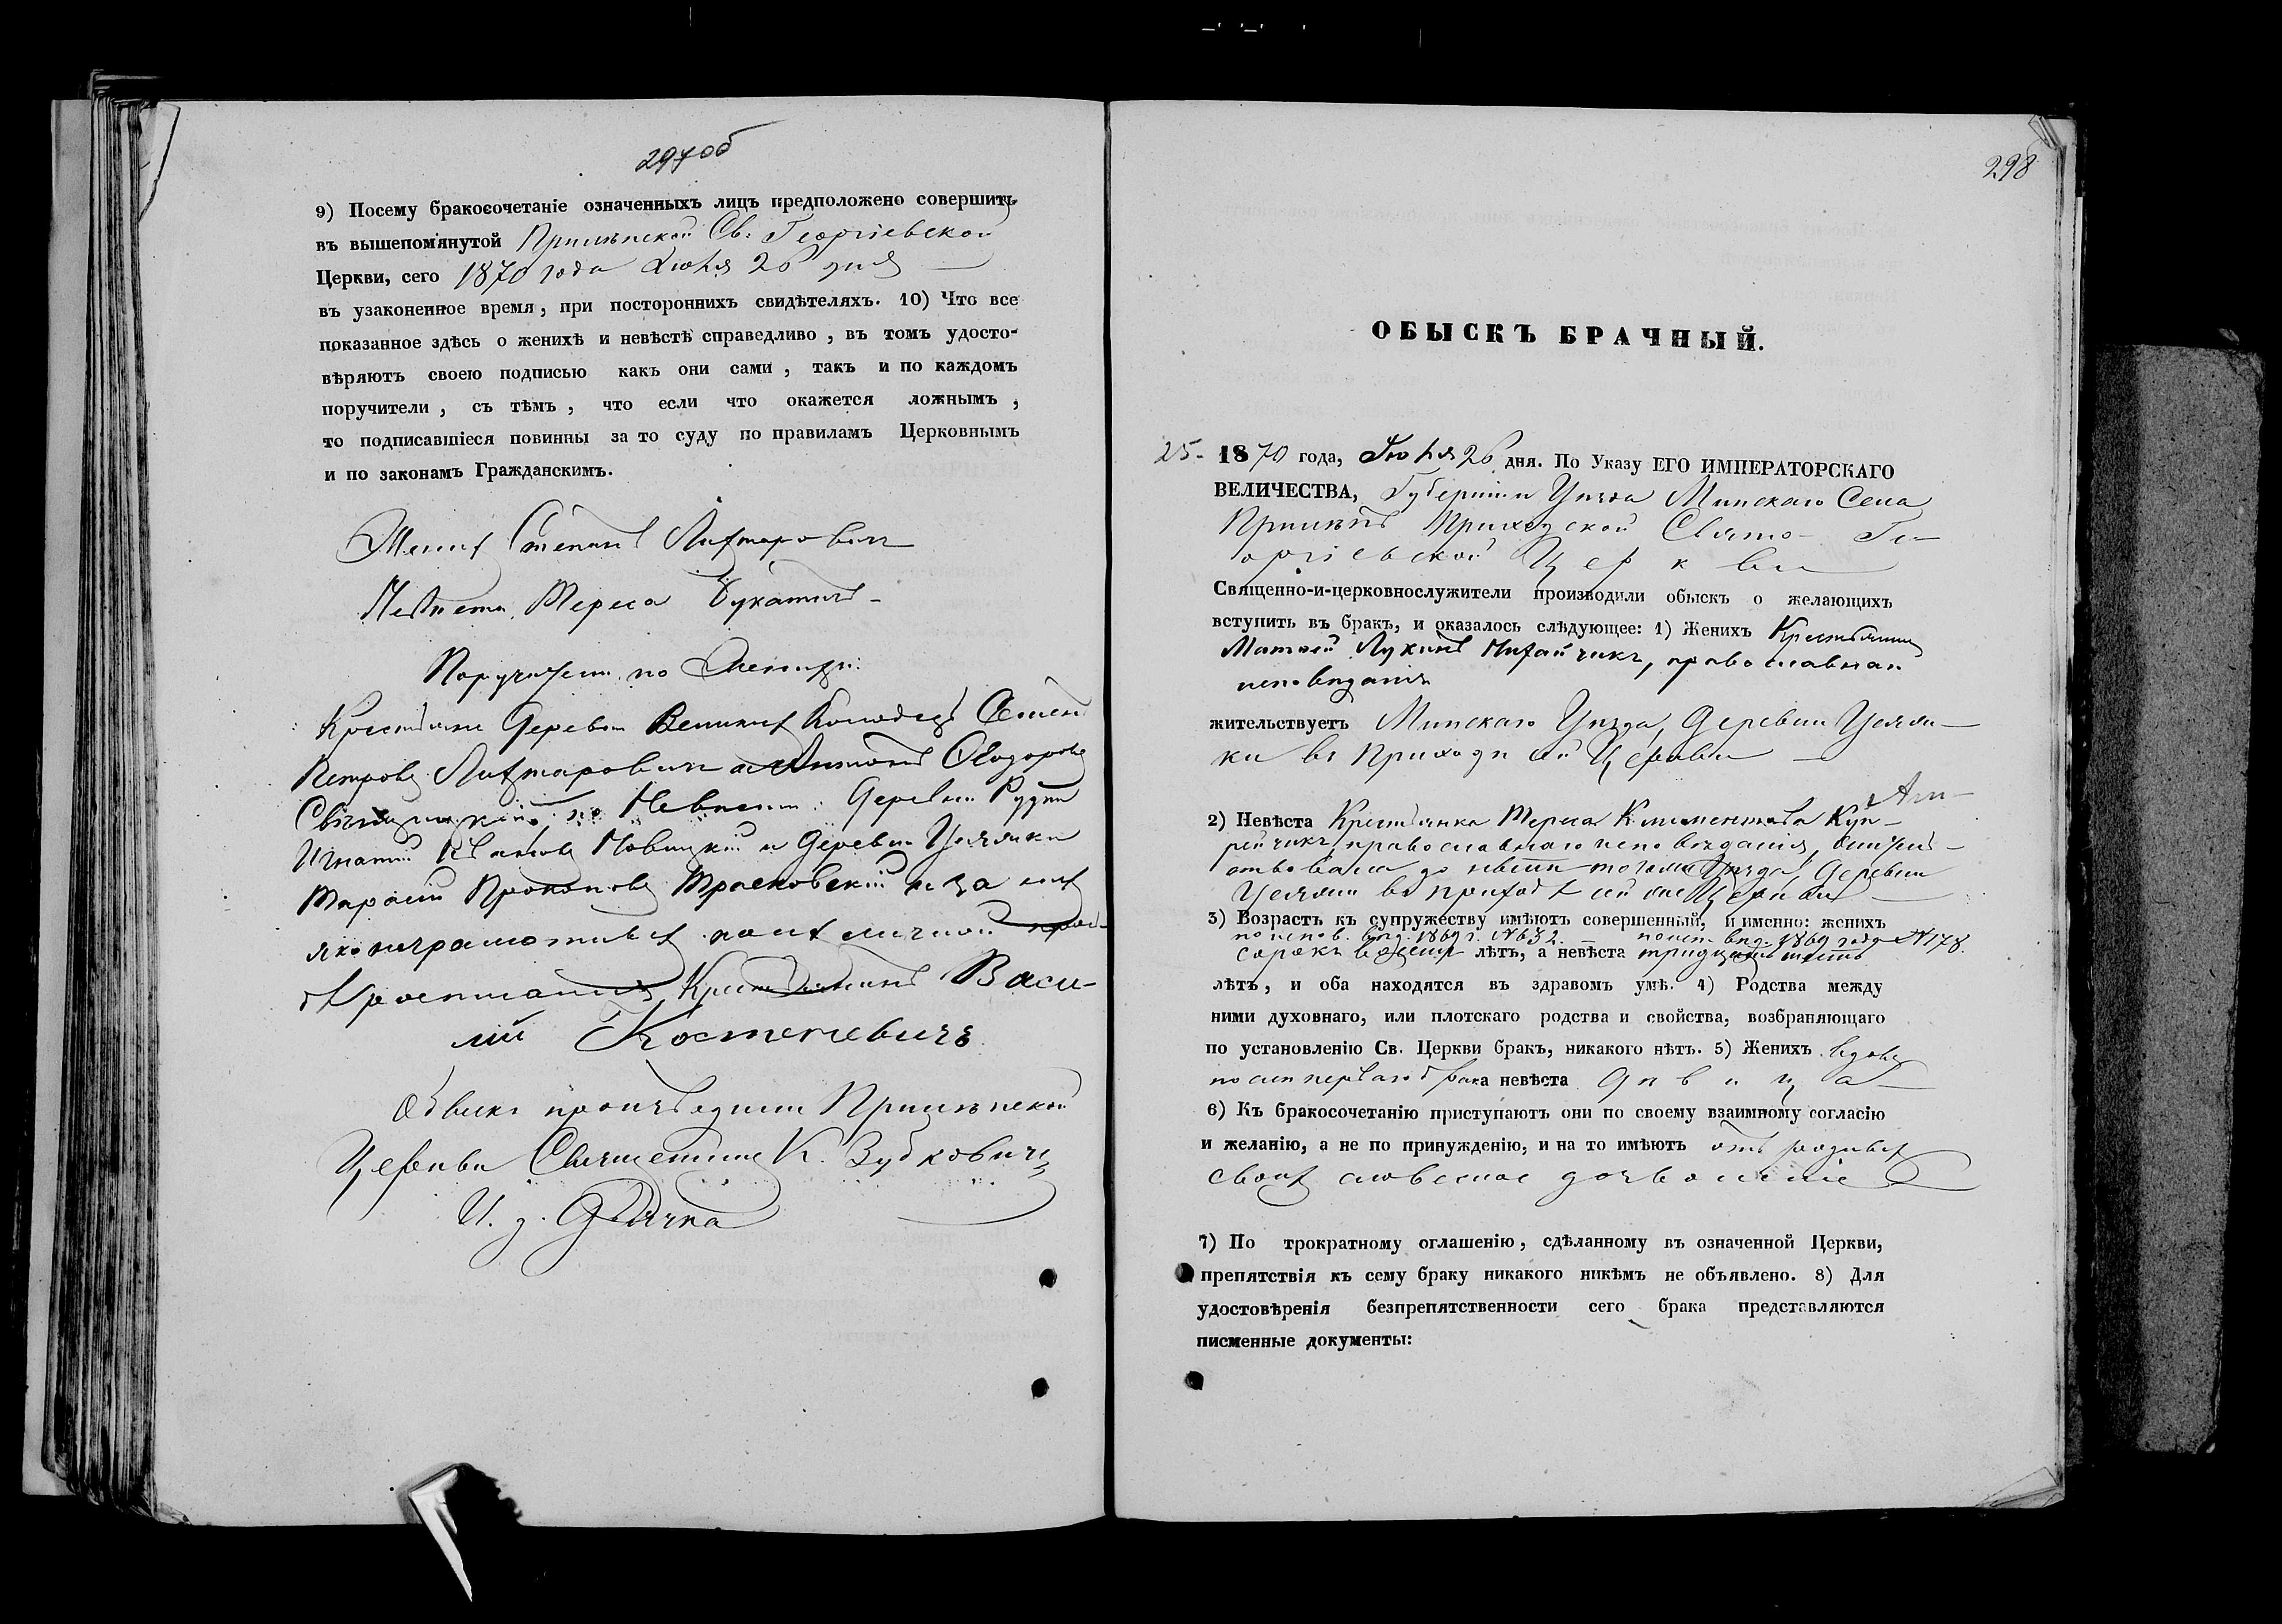 297 об
9) Посему бракосочетаніе означенныхъ лицъ предположено совершить
въ вышепомянутой Прилѣпской Св. Георгіевской
Церкви, сего 1870 года Іюля 26 дня
въ узаконенное время, при постороннихъ свидѣтеляхъ. 10) Что все
показанное здѣсь о женихѣ и невѣстѣ справедливо, въ томъ удосто-
вѣряютъ своею подписью какъ они сами, такъ и по каждомъ
поручители, съ тѣмъ, что если что окажется ложнымъ,
то подписавшіеся повинны за то суду по правиламъ Церковнымъ
и по законамъ Гражданскимъ.
Женихъ Степанъ Лихтарович
Невѣста Тереса
Поручители по Женихѣ:
Крестьяне Деревни Великихъ Колодезь Семен
Петровъ Лихтарович и Антонъ Ѳеодоровъ
по Невѣстѣ: Деревни Рудни
Игнатій Ивановъ Новицкій и Деревни Цесляки
Тарасій Прокоповъ Трасковскій и за них
яко неграмотныхъ по их личной прось-
бѣ росписался Крестьянинъ Васи-
лій Костекевичъ
Обыскъ производили Прилѣпской
Церкви Священникъ К. Зубковичъ
И. д. Дьячка
298
ОБЫСКЪ БРАЧНЫЙ.
25- 1870 года, Іюля 26 дня. По Указу ЕГО ИМПЕРАТОРСКАГО
ВЕЛИЧЕСТВА, Губерніи Уѣзда Минскаго Села
Прилѣпъ Приходской Свято- Ге-
оргіевской Церкви
Священно-и-церковнослужители производили обыскъ о желающихъ
вступить въ бракъ, и оказалось слѣдующее: 1) Женихъ Крестьянинъ
Матѳей Лукинъ Михайчикъ, православнаго
исповѣданія
жительствуетъ Минскаго Уѣзда, Деревни Цесля-
ки въ Приходѣ сей Церкви
2) Невѣста Крестьянка Тереса Климентова
православнаго исповѣданія, жительс-
твовала до нынѣ того же Уѣзда, Деревни
Цесляки въ приходѣ сей же Церкви
3) Возрастъ къ супружеству имѣютъ совершенный, и именно: женихъ
по испов. вѣд. 1869 г. № 632. — по исп. вѣд. 1869 года № 178.
сорокъ восемь лѣтъ, а невѣста тридцать шесть
лѣтъ, и оба находятся въ здравомъ умѣ. 4) Родства между
ними духовнаго, или плотскаго родства и свойства, возбраняющаго
по установленію Св. Церкви бракъ, никакого нѣтъ. 5) Женихъ вдовъ
послѣ перваго брака невѣста Дѣвица
6) Къ бракосочетанію приступаютъ они по своему взаимному согласію
и желанію, а не по принужденію, и на то имѣютъ отъ родныхъ
своихъ словесное дозволеніе
7) По трократному оглашенію, сдѣланному въ означенной Церкви,
препятствія къ сему браку никакого никѣмъ не объявлено. 8) Для
удостовѣренія безпрепятственности сего брака представляются
писменные документы: